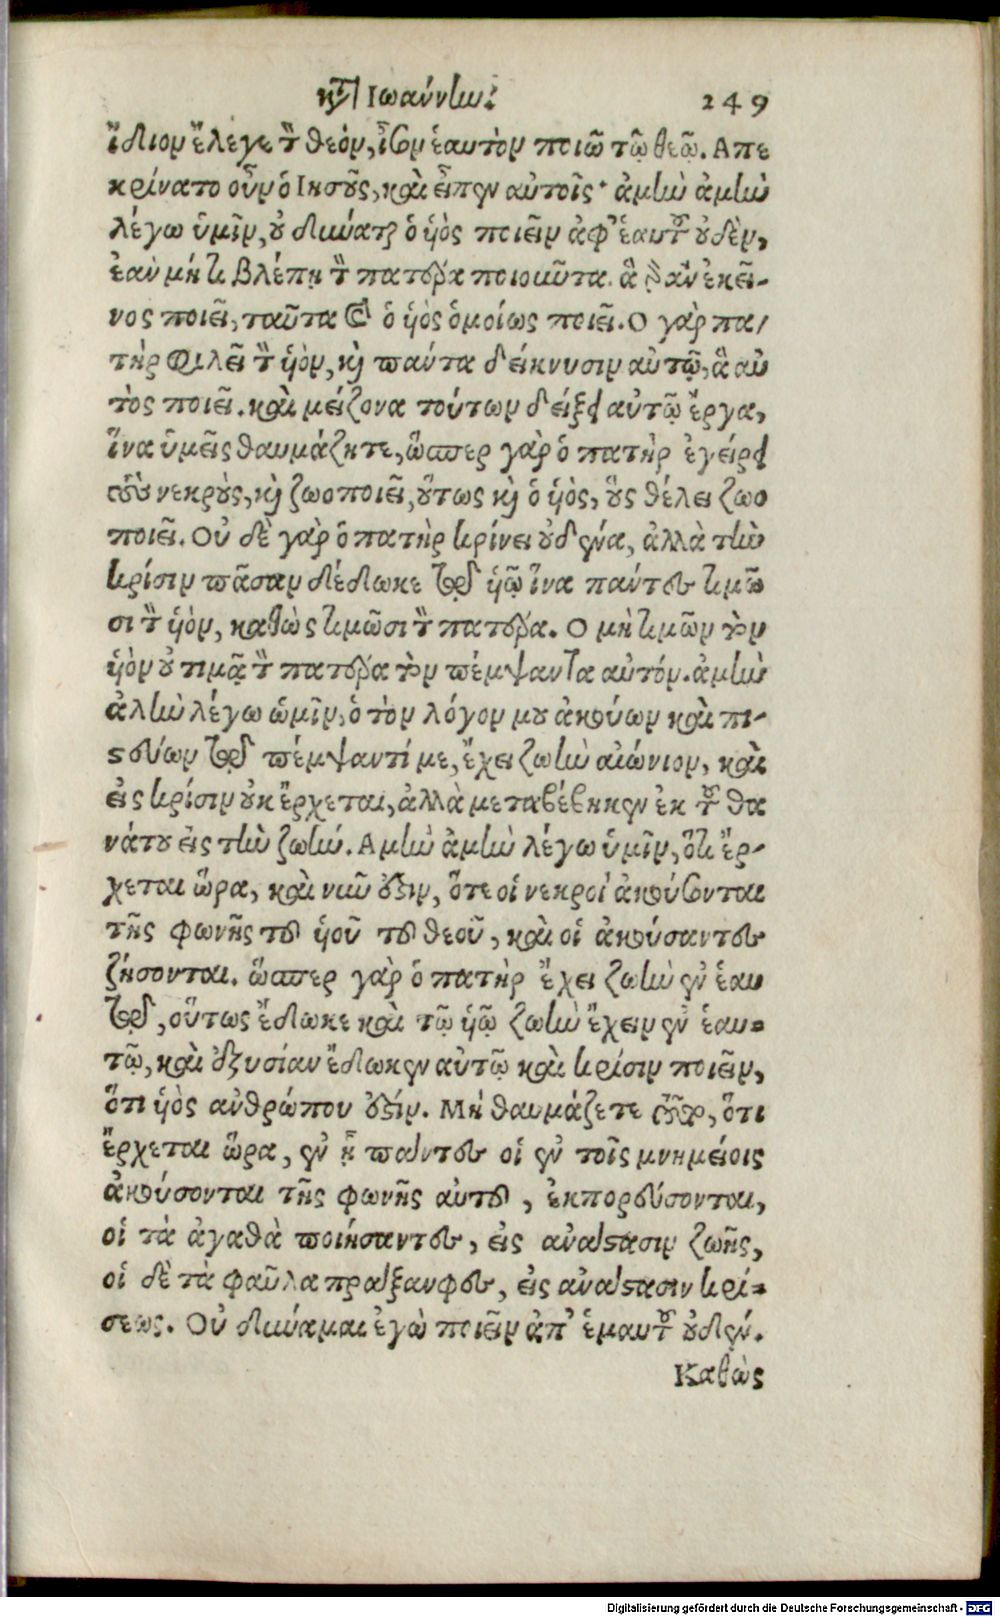 κατὰ Ἰωάννην. 249
ἴδιον ἔλεγε τὸν θεόν, ἴσον ἑαυτὸν ποιῶ τῷ θεῷ. Απε
κρίνατο οὖν ὁ Ιησοῦς, καὶ εἶπεν αὐτοῖς· ἀμὴν ἀμὴν
λέγω ὑμῖν, οὐ δύναται ὁ ὑὸς ποιεῖν ἀφ' ἑαυτοῦ οὐδὲν,
ἐὰν μή τι βλέπῃ τὸν πατέρα ποιοῦντα. ἃ γὰρ ἂν ἐκεῖ-
νος ποιεῖ, ταῦτα καὶ ὁ ὑὸς ὁμοίως ποιεῖ. Ο γὰρ πα/
τὴρ φιλεῖ τὸν ὑὸν, καὶ πάντα δείκνυσιν αὐτῷ, ἃ αὐ
τὸς ποιεῖ. καὶ μείζονα τούτων δείξει αὐτῷ ἔργα,
ἵνα ὑμεῖς θαυμάζητε, ὥσπερ γὰρ ὁ πατὴρ ἐγείρει
τοὺς νεκροὺς, καὶ ζωοποιεῖ, οὕτως καὶ ὁ ὑὸς, οὓς θέλει ζωο
ποιεῖ. Οὐ δὲ γὰρ ὁ πατὴρ κρίνει οὐδένα, ἀλλὰ τὴν
κρίσιν πᾶσαν δέδωκε τῷ ὑῷ ἵνα πάντες τιμῶ
σι τὸν ὑὸν, καθὼς τιμῶσι τὸν πατέρα. Ο μὴ τιμῶν τὸν
ὑὸν οὐ τιμᾷ τὸν πατέρα τὸν πέμψαντα αὐτόν. ἀμὴν
ἀλὴν λέγω ὑμῖν, ὁ τὸν λόγον μου ἀκούων καὶ πι-
στεύων τῷ πέμψαντί με, ἔχει ζωὴν αἰώνιον, καὶ
εἰς κρίσιν οὐκ ἔρχεται, ἀλλὰ μεταβέβηκεν ἐκ τοῦ θα
νάτου εἰς τὴν ζωήν. Αμὴν ἀμὴν λέγω ὑμῖν, ὅτι ἔρ-
χεται ὥρα, καὶ νῦν ἐστιν, ὅτε οἱ νεκροὶ ἀκούσονται
τῆς φωνῆς τοῦ ὑοῦ τοῦ θεοῦ, καὶ οἱ ἀκούσαντες
ζήσονται. ὥσπερ γὰρ ὁ πατὴρ ἔχει ζωὴν ἐν ἑαυ
τῷ, οὕτως ἔδωκε καὶ τῷ ὑῷ ζωὴν ἔχειν ἐν ἑαυ-
τῷ, καὶ ἐξουσίαν ἔδωκεν αὐτῷ καὶ κρίσιν ποιεῖν,
ὅτι ὑὸς ἀνθρώπου ἐστίν. Μὴ θαυμάζετε τοῦτο, ὅτι
ἔρχεται ὥρα, ἐν ᾗ πάντες οἱ ἐν τοῖς μνημείοις
ἀκούσονται τῆς φωνῆς αὐτοῦ, ἐκπορεύσονται,
οἱ τὰ ἀγαθὰ ποιήσαντες, εἰς ἀνάστασιν ζωῆς,
οἱ δὲ τὰ φαῦλα πράξανφες, εἰς ἀνάστασιν κρί-
σεως. Οὐ δύναμαι ἐγὼ ποιεῖν ἀπ' ἐμαυτοῦ οὐδέν.
Καθὼς
Digitalisierung gefördert durch die Deutsche Forschungsgemeinschaft - DFG